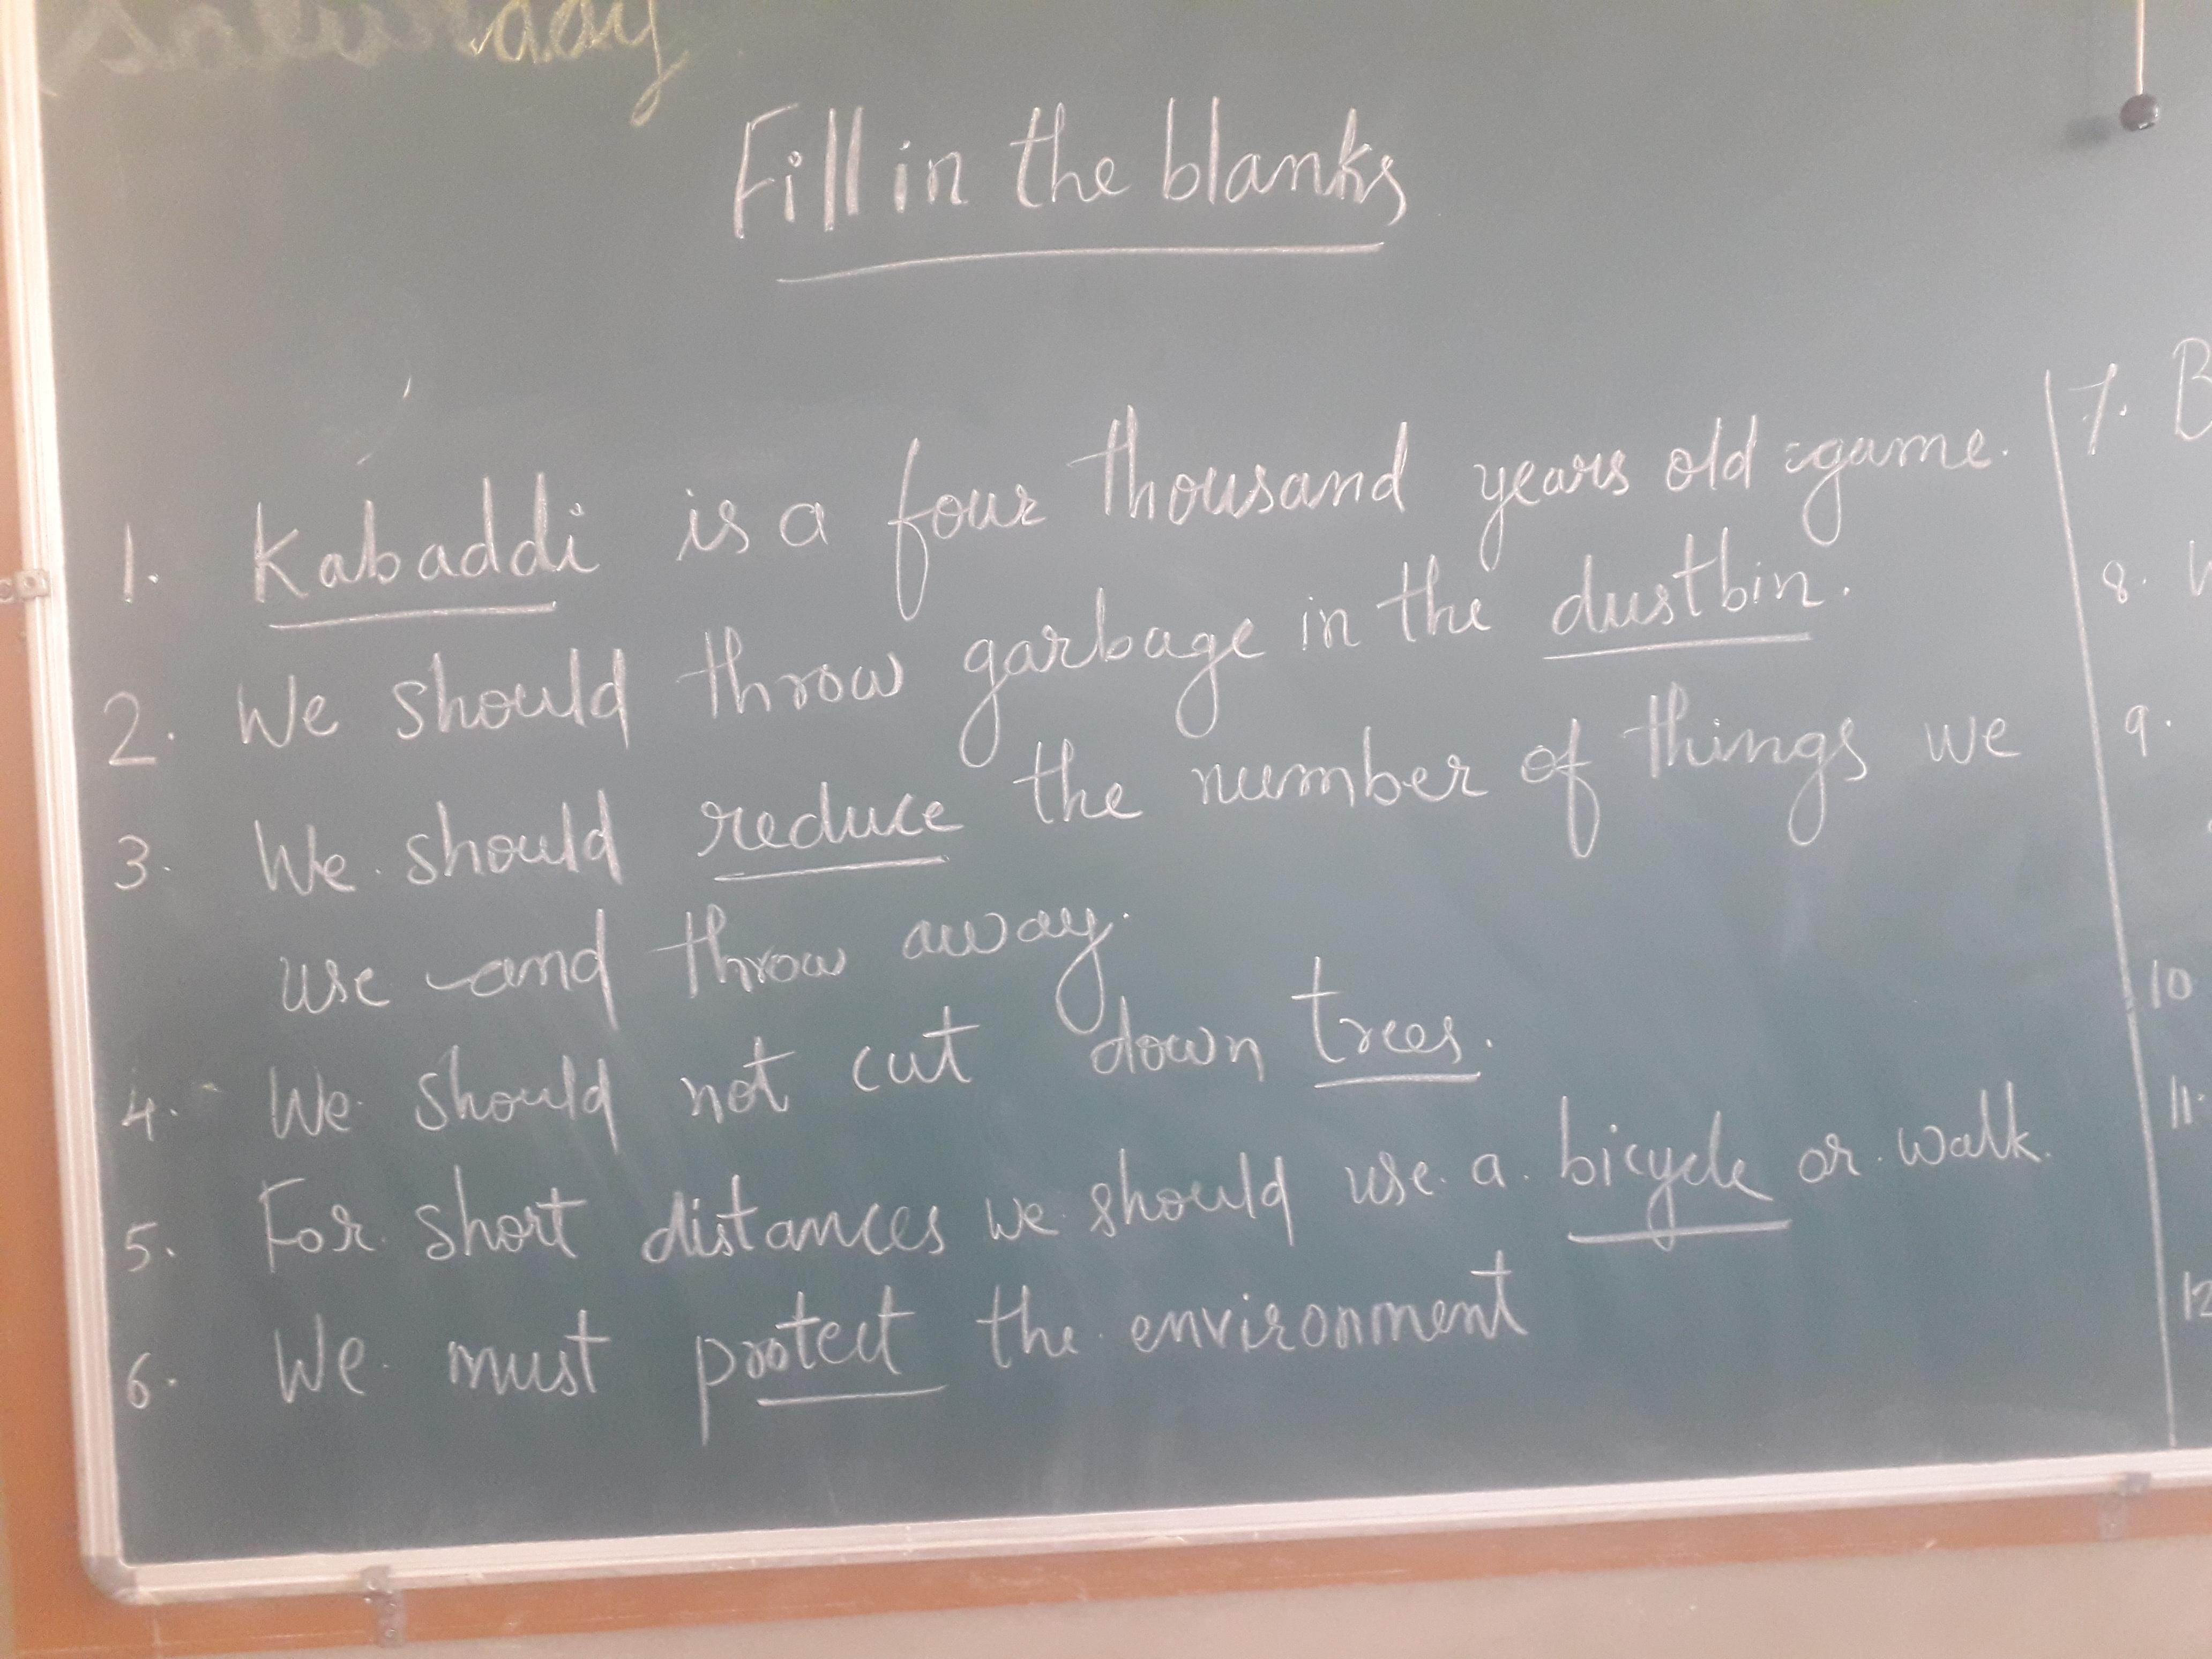 Saturday
Fill in the blanks
1. Kabaddi is a four thousand years old game.
2. We should throw garbage in the dustbin.
3. We should reduce the number of things we
use and throw away.
4. We should not cut down trees.
5. For short distances we should use a bicycle or walk.
6. We must protect the environment
7. B
8.
9.
10
11.
12